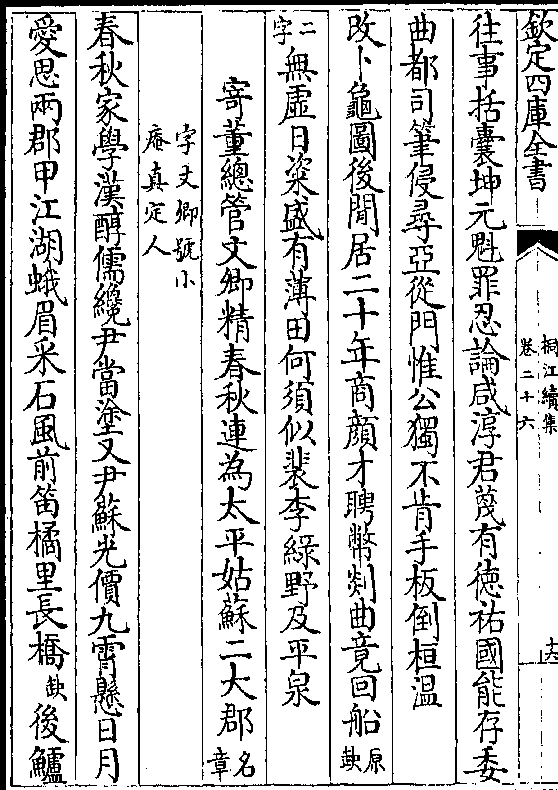 欽定四庫全書
桐江續集
卷二十六
十六
往事括囊坤元魁罪忍論咸淳君蔑有徳祐國能存委
曲都司筆侵尋亞從門惟公獨不肯手板倒桓温
改卜龜圖後閒居二十年商顔才聘幣剡曲竟回船原欵
二字無虛日粢盛有薄田何須似裴李綠野及平泉
寄董總管文卿精春秋連為太平姑蘇二大郡名章
字文卿號小
庵真定人
春秋家學漢醇儒纔尹當塗又尹蘇光價九霄懸日月
愛思兩郡甲江湖蛾眉采石風前笛橘里長橋欵後鱸